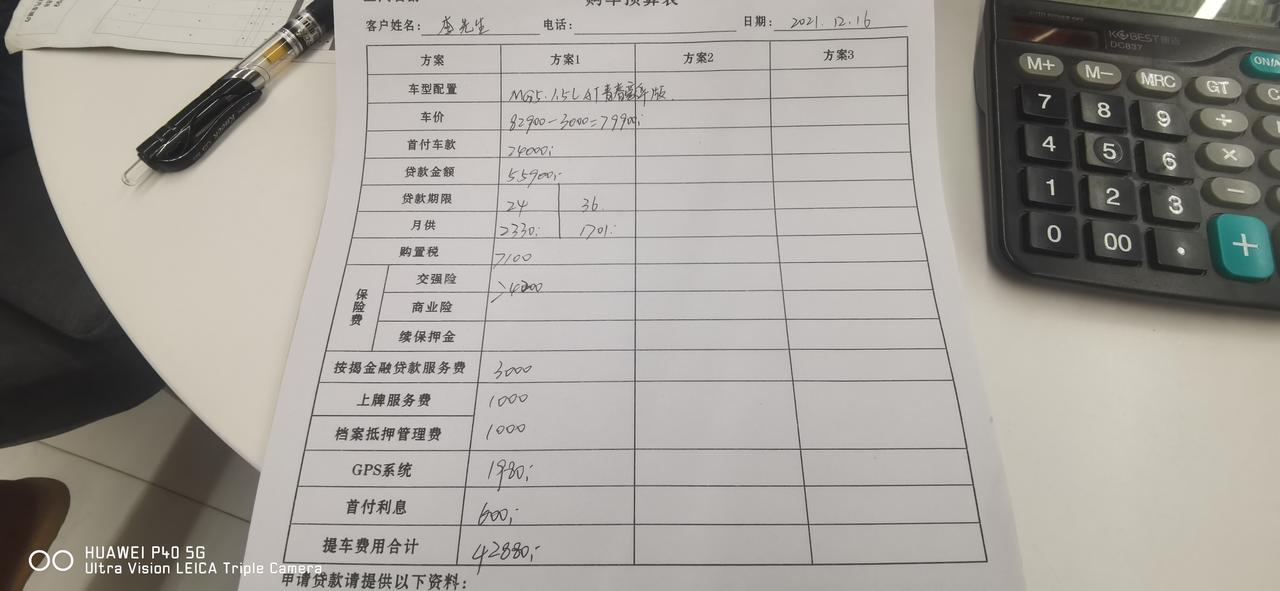 购车预算表
客户姓名： 先生 电话： 日期： 2021.12.16
方案 方案1 方案2 方案3
车型配置 MG5 1.5L AT青春豪华版
车价 82900-3000=79900
首付车款 24000
贷款金额 55900
贷款期限 24 36
月供 2330 1701
购置税 7100
保险费
交强险 4200
商业险
续保押金
按揭金融贷款服务费 3000
上牌服务费 1000
档案抵押管理费 1000
GPS系统 1980
首付利息 600
提车费用合计 42880
申请贷款请提供以下资料：
KCBEST
DC837
M+ M- MRC GT
7 8 9 ÷
4 5 6 ×
1 2 3 −
0 00 . +
HUAWEI P40 5G
Ultra Vision LEICA Triple Camera